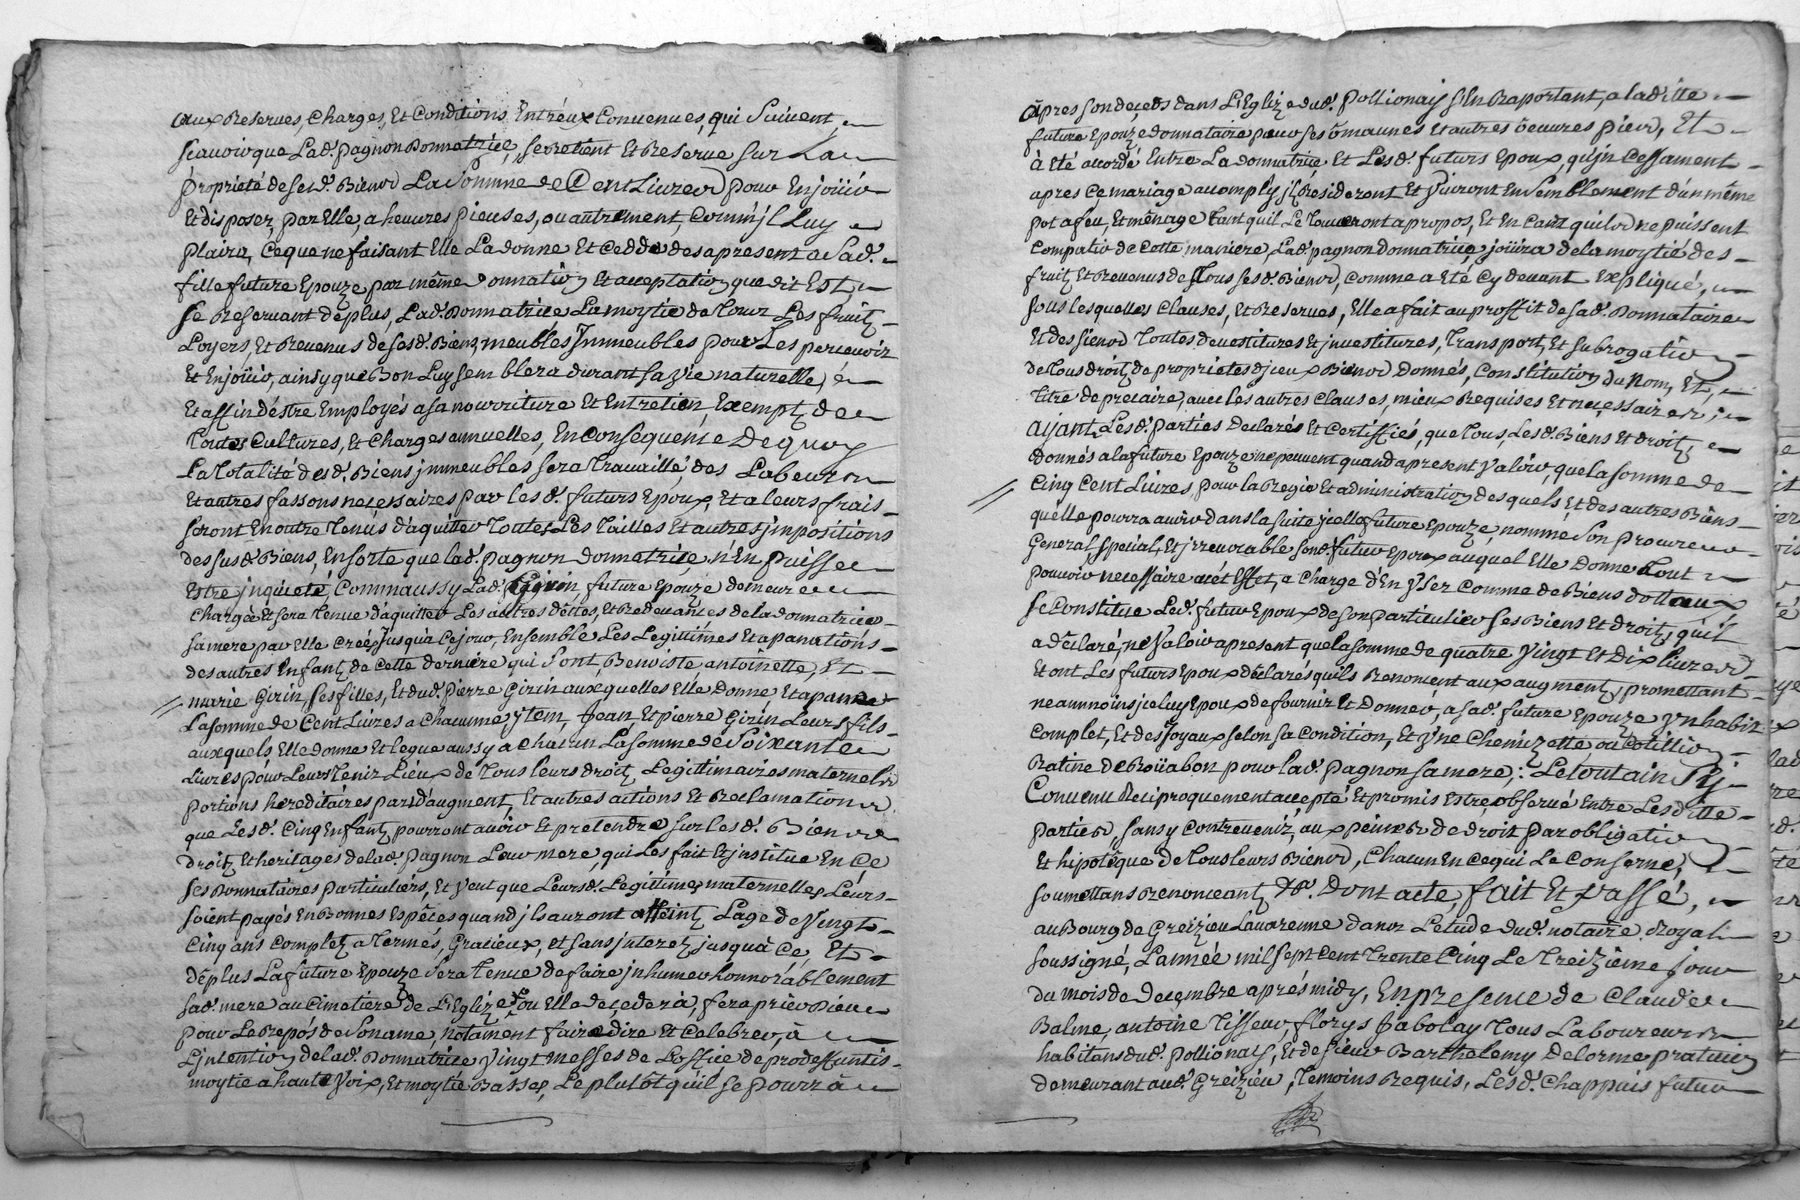 aux Reserves, Charges, Et Conditions Entréux Convenues, qui Suivent
scavoir que Lad. pagnon Donnatrice, se retient Et Reserve sur La
propriété de sesd. Biens La somme de Cent Livres pour Enjoüir
Et disposer, par Elle, a heuvres pieuses, ou autrement, Comm'jl Luy
plaira, Ceque ne faisant Elle La donne Et Cedde des apresent a Sad.
fille future Epouze par même donnation Et acceptation que dit Est
se Reservant de plus, Lad. Donnatrice La moytié de Tous Les fruitz
Loyers, Et Revenus de sesd. Biens, meubles Jmmeubles pour Les percevoir
Et Enjoüir, ainsy que Bon Luy semblera durant sa vie naturelle,
Et affin d'éstre Employés a sa nourriture Et Entretien, Exemptz de
Toutes Cultures, Et Charges annuelles, En Conséquence De quoy
La Totalité desd. Biens jmmeubles sera Travaillé, des Labeurs
Et autres fassons necessaires par lesd. futurs Epoux, Et a leurs frais
seront En outre Tenus d'aquitter Toutes Les Tailles Et autres jmpositions
des susd. Biens, En sorte que lad. pagnon Donnatrice n'En puisse
Estre jnquietté, Comm'aussy Lad. Girin future Epouze demeure
Chargée Et sera Tenue d'aquitter Les autres dettes, Et Redevances de la donnatrice
sa mere par Elle Créés Jusqu'a Ce jour, Ensemble Les Legittimes Et apanations
des autres Enfantz de Cette derniere qui sont, Benoiste, antoinette, Et
marie Girin, ses filles, Et dud. Pierre Girin auxquelles Elle Donne Et apanne
La somme de Cent Livres a Chacunne, ytem, Jean, Et pierre Girin Leurs fils
auxquels Elle donne Et legue aussy a Chacun La somme de Soixante
Livres pour Leurs Tenir Lieux de Tous leurs droitz Legittimaires maternels
portions hereditaires par d'augment, Et autres actions Et Reclamations
que Lesd. Cinq Enfantz pourront avoir Et pretendre sur lesd. Biens
droitz, Et heritages de lad. Pagnon Leur mere, qui Les fait Et jnstitue En Ce
ses Donnataires particuliers, Et veut que Leursd. Legittimes maternelles Leurs
soient payés En Bonnes Espéces, quand jls auront atteint L'age de Vingt
Cinq ans Complets a Termes, Gracieux, Et sans jnterez jusqu'a Ce, Et
de plus La future Epouze sera Tenue de faire jnhumer honnorablement
sad. mere au Cimetiere de L'Eglize, ou Elle decedera, fera prier Dieu
pour Le Repós de son ame, notament faire dire Et Celebrer, a
L'jntention de lad. Donnatrice Vingt messes de L'office de pro deffuntis
moytié a haute Voix, Et moytié Basses, Le plutôt qu'il se pourra
àpres son deçeds dans L'Eglize dud. Pollionay s'En Raportant, a ladite
future Epouze donnataire pour ses aumaunes Et autres oeuvres pies, Et
à été accordé Entre La donnatrice Et Lesd. futurs Epoux, qu'jncessament
apres Ce mariage accomply jls Resideront Et Vivront Ensemblement d'un même
pot a feu, Et ménage Tant quil Le Trouveront a propos, Et En Cas qu'ils ne puissent
Compatir de Cette maniere, Lad. pagnon donnatrice, joüira de la moytié des
fruitz, Et Revenus de Tous sesd. Biens, comme a Eté Cy devant Expliqué,
sous lesquelles Clauses, Et Reserves, Elle a fait au proffit de sad. Donnataire
Et des siens Toutes devestitures Et jnvestitures, Transport, Et subrogation
de Tous droitz de proprietés d'jceux Biens Donnés, Constitution du Nom, Et,
Titre de precaire, avec les autres Clauses, mieux Requises Et necessaires,
ayant Lesd. parties Declarés Et Certiffiés, que Tous Lesd. Biens Et droitz
donnés a la future Epouze ne peuvent quand apresent Valoir, que la somme de
Cinq Cent Livres, pour la Regie Et administration desquels, Et des autres Biens
qu'elle pourra avoir dans la suite jcelle future Epouze, nomme Son procureur
General special, Et jrrevocable sond. futur Epoux auquel Elle Donne Tout
pouvoir necessaire a cet Effet, a Charge d'En Vser Comme de Biens dottaux
se Constitue Led. futur Epoux de son particulier ses Biens Et droitz, qu'il
a déclaré, ne Valoir apresent que la somme de quatre Vingt Et Dix livres
Et ont Les futurs Epoux déclarés qu'ils Renoncent aux augmentz, promettant
neammoins jcelluy Epoux de fournir Et Donner, a sad. future Epouze Vn habit
Complet, Et des Joyaux selon sa Condition, Et Vne Chemizette ou Cotillion
Ratine de Roüabon pour lad. Pagnon sa mere; Le tout ainsy
Convenu Reciproquement accepté Et promis Estre observé Entre Lesditte
parties, sans y Contrevenir, aux peines de droit par obligation
Et hipotêque de Tous leurs Biens, Chacun En ce qui Le Conserne,
soumettans Renonceantz &a. Dont acte, fait Et Passé,
au Bourg de Greizieu Lavarenne dans L'etude dud. notaire Royal
soussigné, L'année mil sept Cent Trente Cinq Le Treiziéme jour
du mois de Decembre aprés midy, En presence de Claude
Balme, antoine Tisseur, florys Jabolay Tous Laboureurs
habitans dud. Pollionay, Et de sieur Barthelemy Delorme praticien
demeurant aud. Greizieu, Temoins Requis, Lesd. Chappuis futur